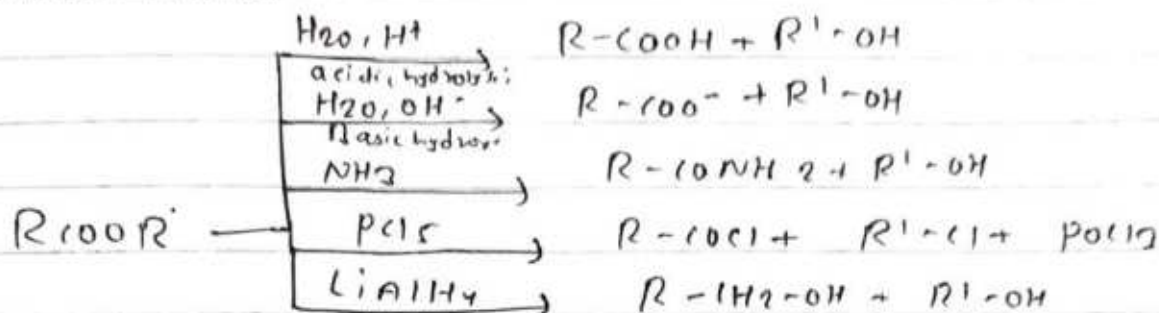 H2O, H+ R-COOH + R'-OH
acidic hydrolysis
H2O, OH- R-COO- + R'-OH
Basic hydro.
NH3 R-CONH2 + R'-OH
RCOOR' PCl5 R-COCl + R'-Cl + POCl3
LiAlH4 R-CH2-OH + R'-OH